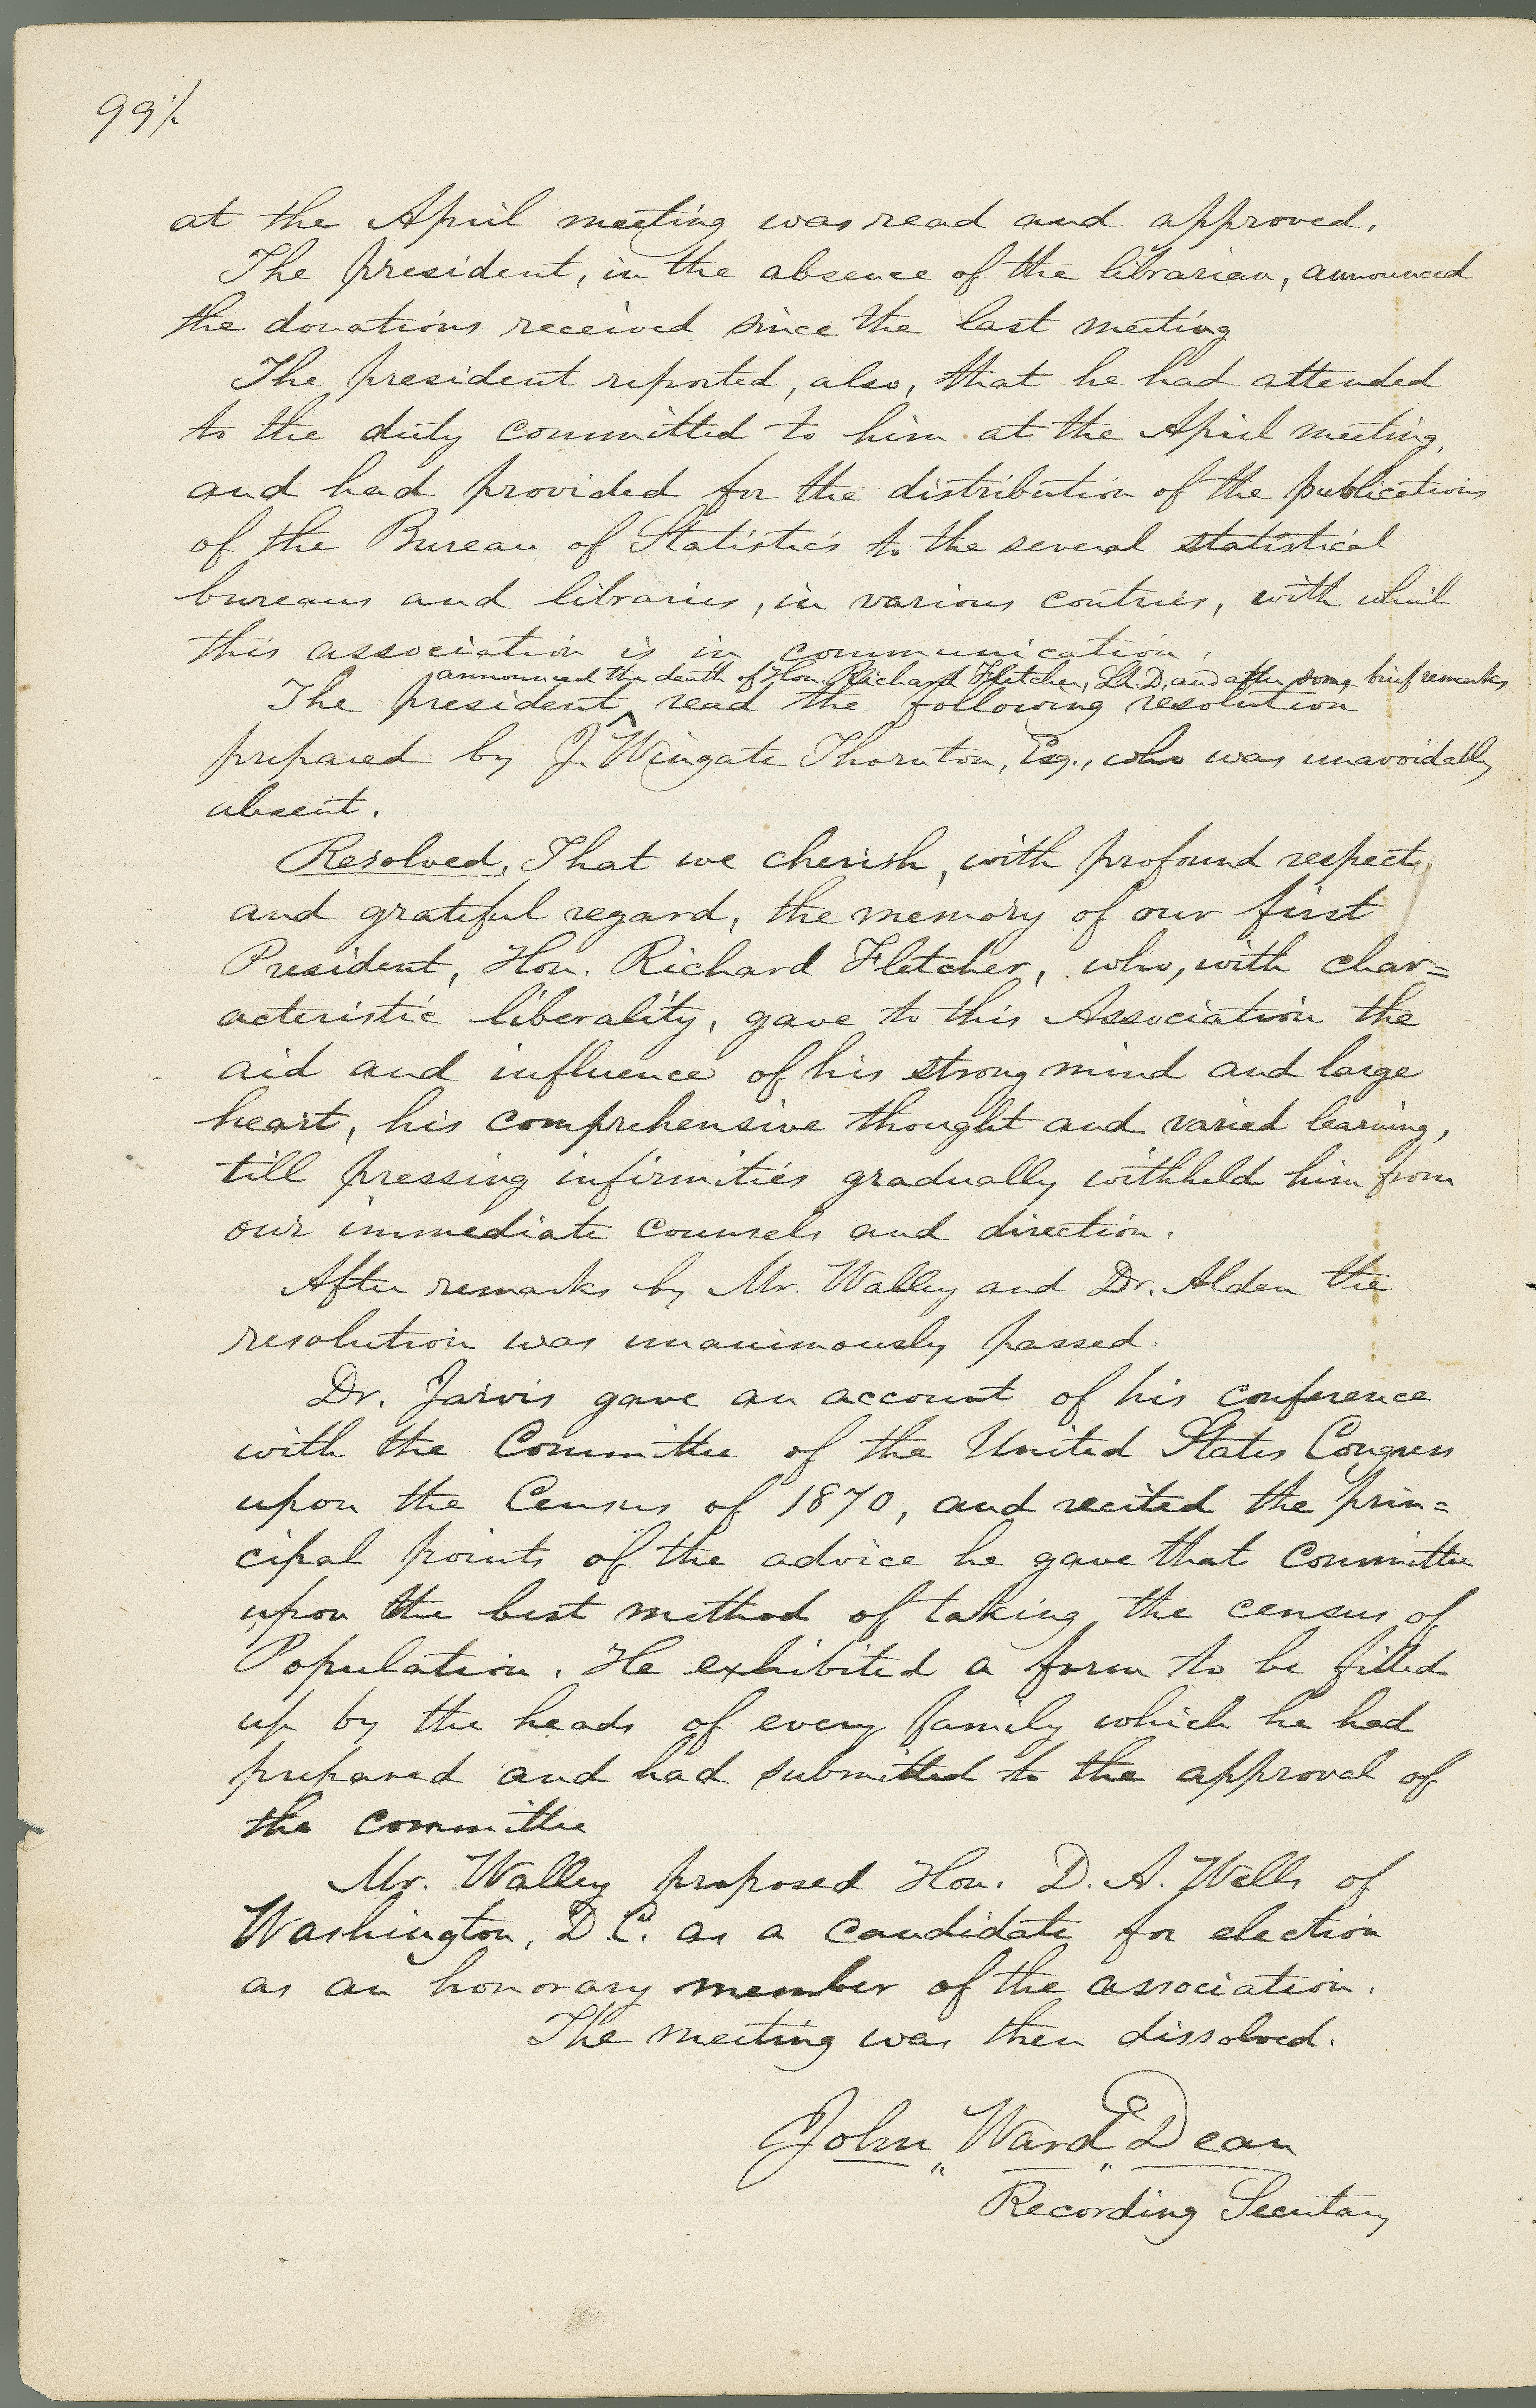 99½
at the April meeting was read and approved.
The president, in the absence of the librarian, announced
the donations received since the last meeting
The president reported, also, that he had attended
to the duty committed to him at the April meeting,
and had provided for the distribution of the publications
of the Bureau of Statistics to the several statistical
bureaus and libraries, in various contries, with which
this association is in communication.
announced the death of Hon. Richard Fletcher, LL.D. and after some brief remarks
The president ^ read the following resolution
prepared by J. Wingate Thornton, Esq., who was unavoidably
absent.
Resolved, That we cherish, with profound respect,
and grateful regard, the memory of our first
President, Hon. Richard Fletcher, who, with char=
acteristic liberality, gave to this Association the
aid and influence of his strong mind and large
heart, his comprehensive thought and varied learning,
till pressing infirmities gradually withheld him from
our immediate counsels and direction.
After remarks by Mr. Walley and Dr. Alden the
resolution was unanimously passed.
Dr. Jarvis gave an account of his conference
with the Committee of the United States Congress
upon the Census of 1870, and recited the prin=
cipal points of the advice he gave that Committee
upon the best method of taking the census of
Population. He exhibited a form to be filled
up by the heads of every family which he had
prepared and had submitted to the approval of
the committee
Mr. Walley proposed Hon. D. A. Wells of
Washington, D.C. as a candidate for election
as an honorary member of the association.
The meeting was then dissolved.
John Ward Dean
Recording Secretary